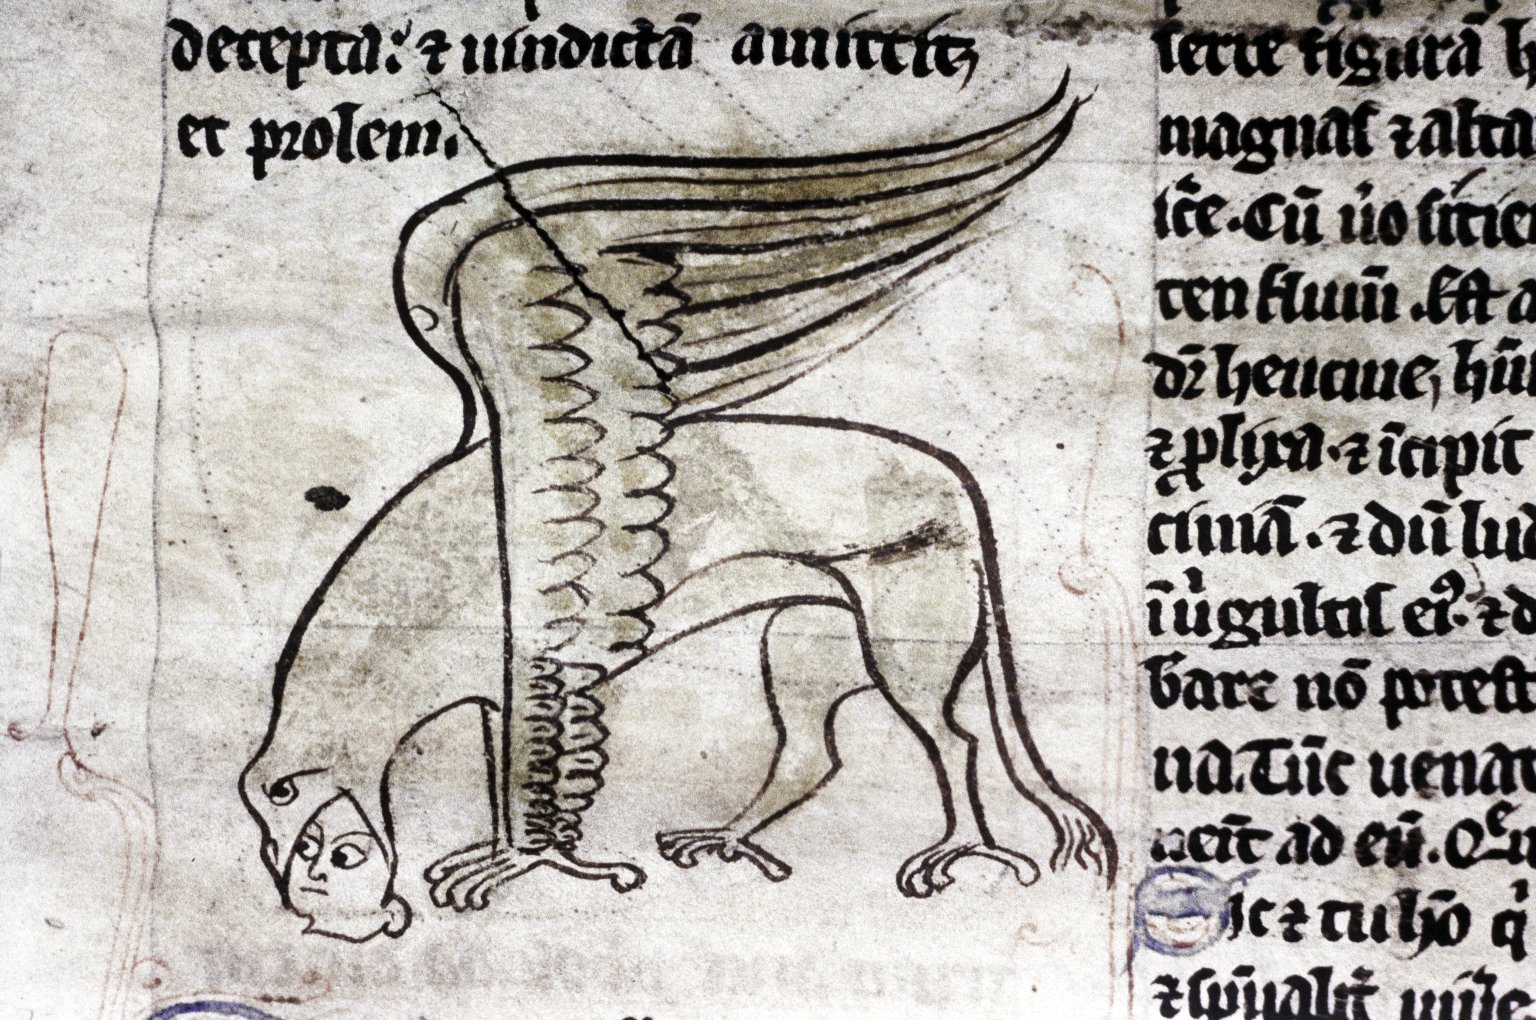 decepta: ⁊ uindictā amittit,
et prolem.
ferre figurā h
magnas ⁊ alta
Cū ů̄o sitien
ten fluuiū. Est a
dr̄ heucine, hūi
⁊ ꝓlixa. ⁊ īcipit
cimā. ⁊ dū lud
ůgultis ei⁹. ⁊ d
bare nō potest
na. Tūc uenat
ueīt ad eū.
ic ⁊ tu hō q
⁊ sp̄ualit̄